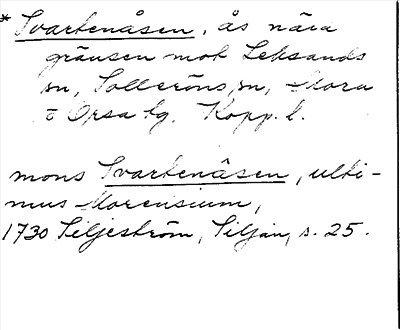 * Svartenåsen, ås nära
gränsen mot Leksands
sn, Solleröns sn, Mora
o Orsa tg. Kopp. l.
mons Svartenåsen, ulti-
mus Morensium,
1730 Siljeström, Siljan, s. 25.